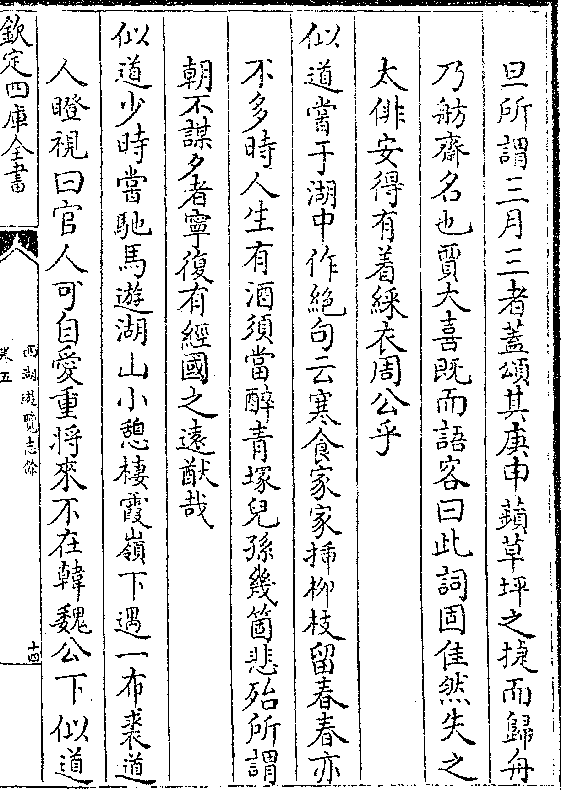 旦所謂三月三者蓋頌其庚申蘋草坪之捷而歸舟
乃舫齋名也賈大喜既而語客曰此詞固佳然失之
太俳安得有着綵衣周公乎
似道嘗于湖中作絶句云寒食家家揷柳枝留春春亦
不多時人生有酒須當醉青塚兒孫幾箇悲殆所謂
朝不謀夕者寧復有經國之遠猷哉
似道少時嘗馳馬遊湖山小憩棲霞嶺下遇一布裘道
人瞪視曰官人可自愛重將來不在韓魏公下似道
欽定四庫全書
西湖遊覽志餘
卷五
十四